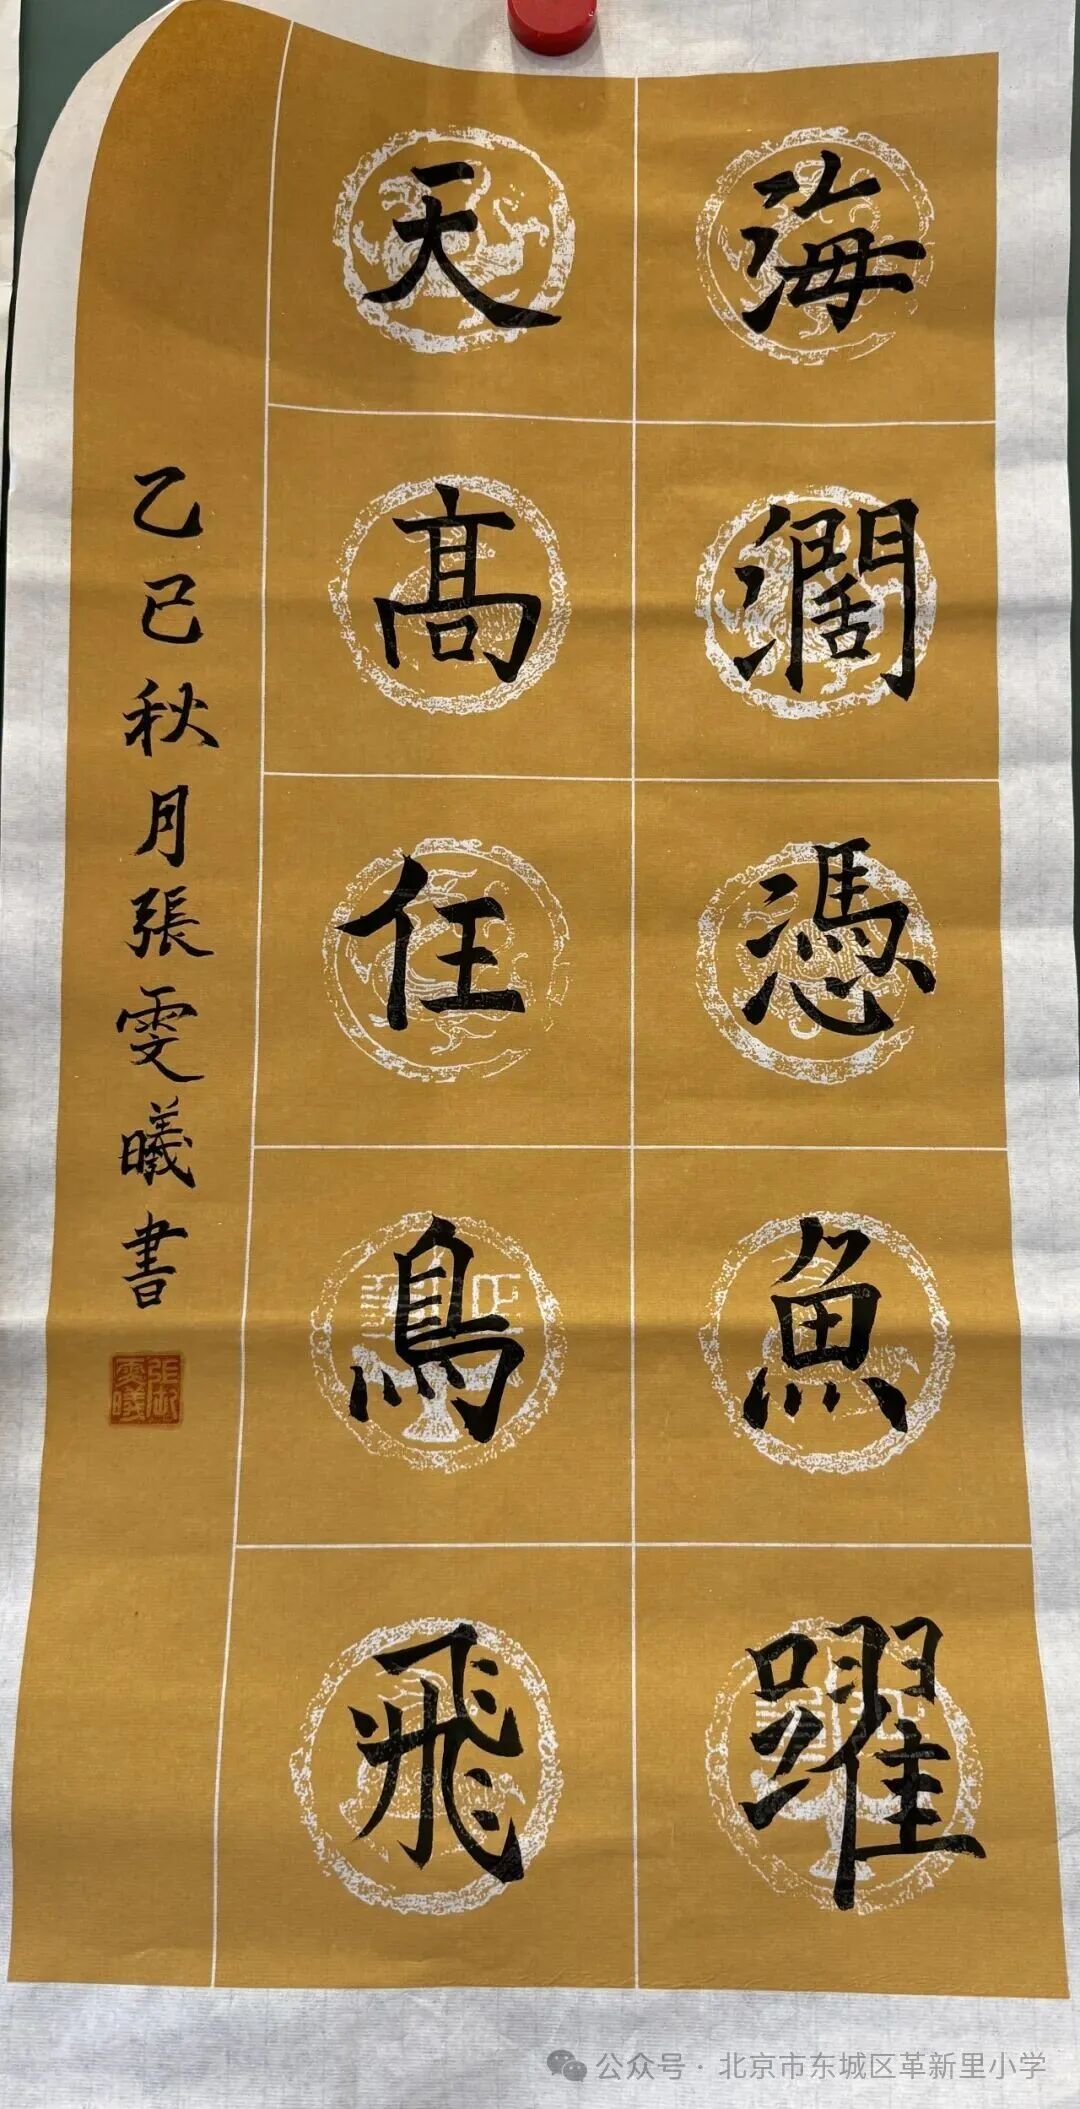 海濶憑魚躍
天高任鳥飛
乙巳秋月張雯曦書
公众号·北京市东城区革新里小学